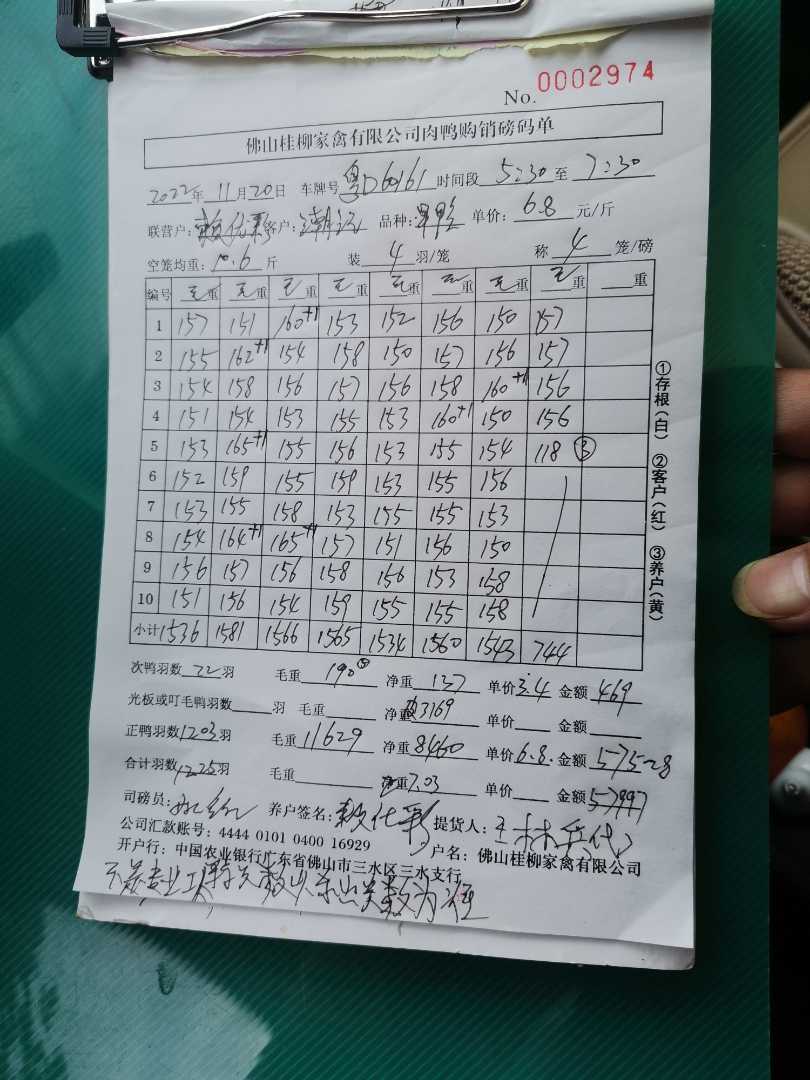 No. 0002974
佛山桂柳家禽有限公司肉鸭购销磅码单
2022年 11月20日 车牌号 粤D60161 时间段 5:30 至 7:30
联营户: 赖仕彩 客户: 品种: 单价: 6.8 元/斤
空笼均重: 10.6 斤 装 4 羽/笼 称 4 笼/磅
编号 毛重 毛重 毛重 毛重 毛重 毛重 毛重 毛重 重
1 157 151 160+1 153 152 156 150 157
2 155 162+1 154 158 150 157 156 157
3 154 158 156 157 156 158 160+1 156
4 151 154 153 155 153 160+1 150 156
5 153 165+1 155 156 153 155 154 118 ③
6 152 159 155 159 153 155 156
7 153 155 158 153 155 155 153
8 154 164+1 165+1 157 151 156 150
9 156 157 156 158 156 153 158
10 151 156 154 159 155 155 158
小计 1536 1581 1566 1565 1534 1560 1543 744
次鸭羽数 22 羽 毛重 190 净重 137 单价 3.4 金额 469
光板或叮毛鸭羽数 羽 毛重 净重 3169 单价 金额
正鸭羽数 1203 羽 毛重 11629 净重 8460 单价 6.8. 金额 57528
合计羽数 1225 羽 毛重 净重 7.03 单价 金额 57997
司磅员: 养户签名: 赖仕彩 提货人: 王林兵代
公司汇款账号: 4444 0101 0400 16929 户名: 佛山桂柳家禽有限公司
开户行: 中国农业银行广东省佛山市三水区三水支行
①存根(白) ②客户(红) ③养户(黄)